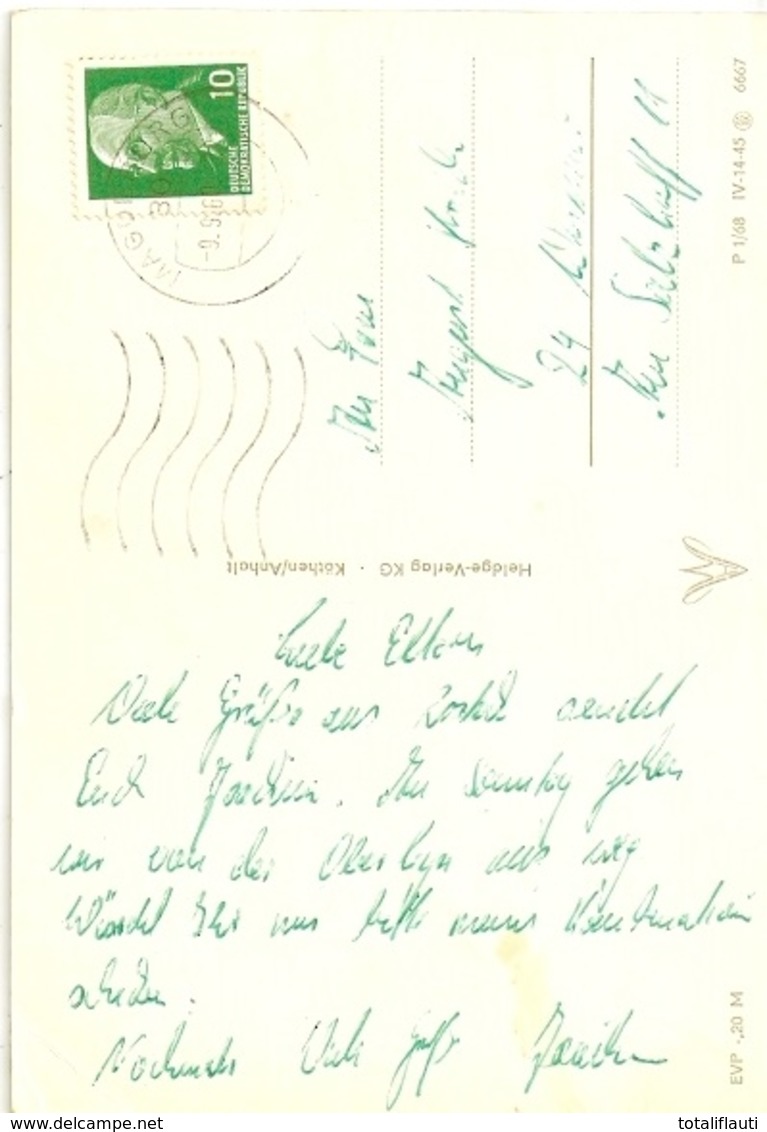 10
DEUTSCHE
DEMOKRATISCHE REPUBLIK
MAGDEBURG
-9.9.6
An Fam
August
24
Am Salzhaff 11
P 1/68 IV-14-45 6667
Heldge-Verlag KG · Köthen/Anhalt
Liebe Eltern
Viele Grüße aus sendet
Euch Joachim. Am Sonntag gehen
wir von der aus weg
Würdet Ihr mir bitte meine
schicken.
Nochmals Viele Grüße Joachim
EVP -,20 M
www.delcampe.net
totaliflauti